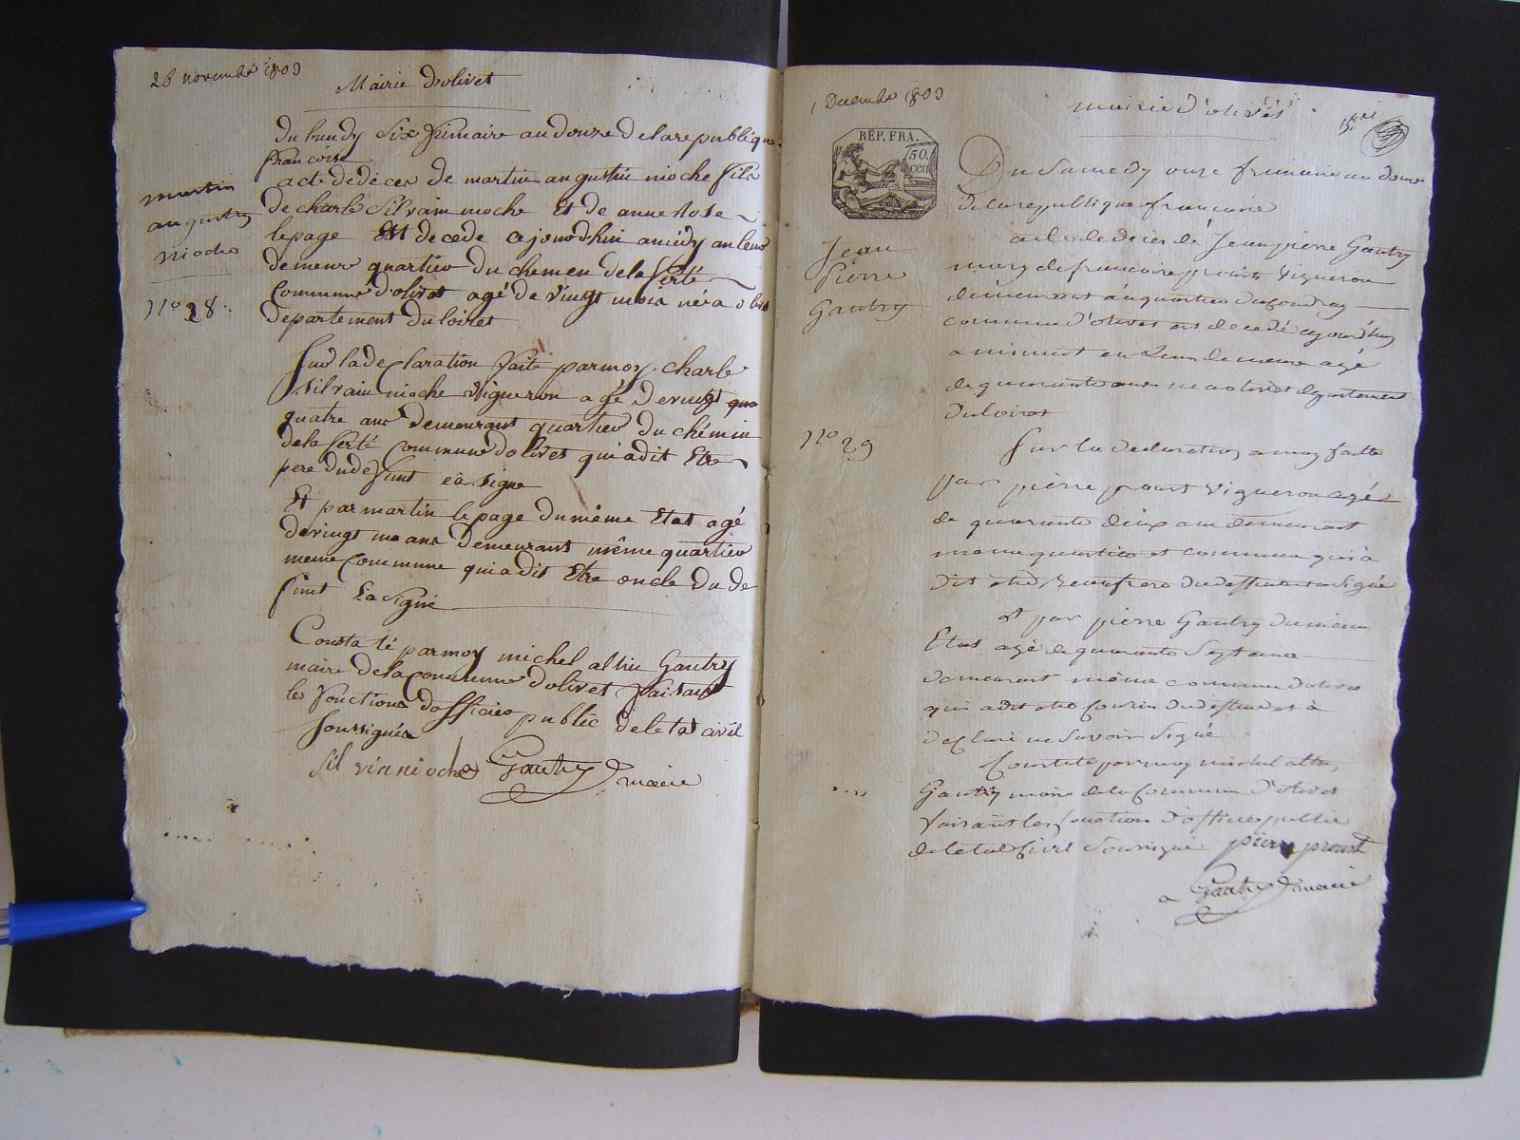 26 novembre 1803
Mairie d'olivet
du lundy Six frimaire an douze de la republique
francoise
act de décés de martin augustin nioche fils
de charle Silvain nioche Et de anne Rose
lepage Est decedé cejourdhui a midy an leur
demeure quartier du chemen de la ferté
Commune d'olivet agé de vingt mois né a olivet
departement du loiret
martin
augustin
nioche
n° 28.
Sur la declaration faite par moy charle
silvain nioche vigneron agé de vingt
quatre ans demeurant quartier du chémin
de la ferté Commune dolivet qui a dit Etre
pere du defunt et a signe
Et par martin lepage du même Etat agé
de vingt ans demeurant même quartier
meme Commune qui a dit Etre oncle du de
funt Et a signé
Constaté par moy michel altin Gautry
maire de la Commune dolivet faisant
les fonctions dofficier public de letat civil
soussignés
Sil vin nioche Gautry maire
1 Decembre 1803
mairie d'olivet
RÉP. FRA.
50.
cen
Du Samedy onze frimaire an douze
de la republique francoise
acte de deces de Jean pierre Gautry
mary de francoise prout vigneron
demeurant au quartier du Coudray
commune d'olivet est decedé cejourd'huy
a minuit en Sa demeure agé
de quarante ans né a olivet departement
du loiret
Jean
Pierre
Gautry
n° 29
Sur la declaration a moy faite
par pierre prout vigneron agé
de quarante deux ans demeurant
meme quartier et commune qui a
dit etre beaufrere du deffunt et a Signé
et par pierre Gautry du même
Etat agé de quarante Sept ans
demeurant même commune d'olivet
qui a dit etre Cousin du deffunt et a
declaré ne Savoir Signé
Constaté par moy michel altin
Gautry maire de la Commune d'olivet
faisant les fonctions d'officier public
de letat Civil Soussigné pierre prout
Gautry maire